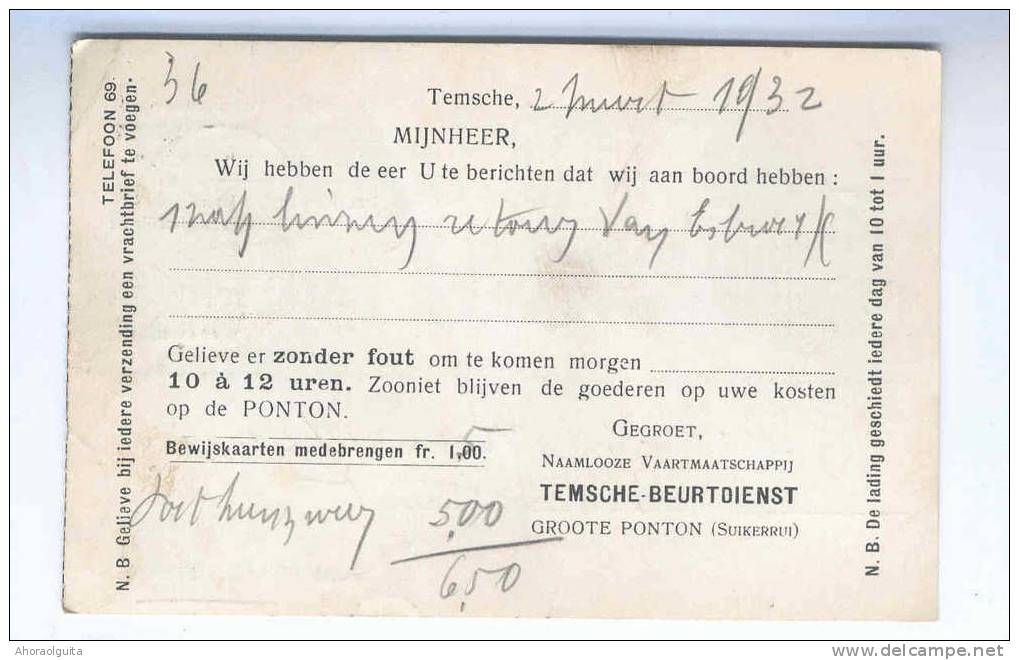 TELEFOON 69.
N. B Gelieve bij iedere verzending een vrachtbrief te voegen.
36
Temsche, 2 Maart 1932
MIJNHEER,
Wij hebben de eer U te berichten dat wij aan boord hebben :
linnen retour Van
Gelieve er zonder fout om te komen morgen
10 à 12 uren. Zooniet blijven de goederen op uwe kosten
op de PONTON.
Bewijskaarten medebrengen fr. 1,00.
5
5,00
6,50
GEGROET,
NAAMLOOZE VAARTMAATSCHAPPIJ
TEMSCHE-BEURTDIENST
GROOTE PONTON (SUIKERRUI)
N. B. De lading geschiedt iedere dag van 10 tot 1 uur.
Ahoraolguita
delcampe.net